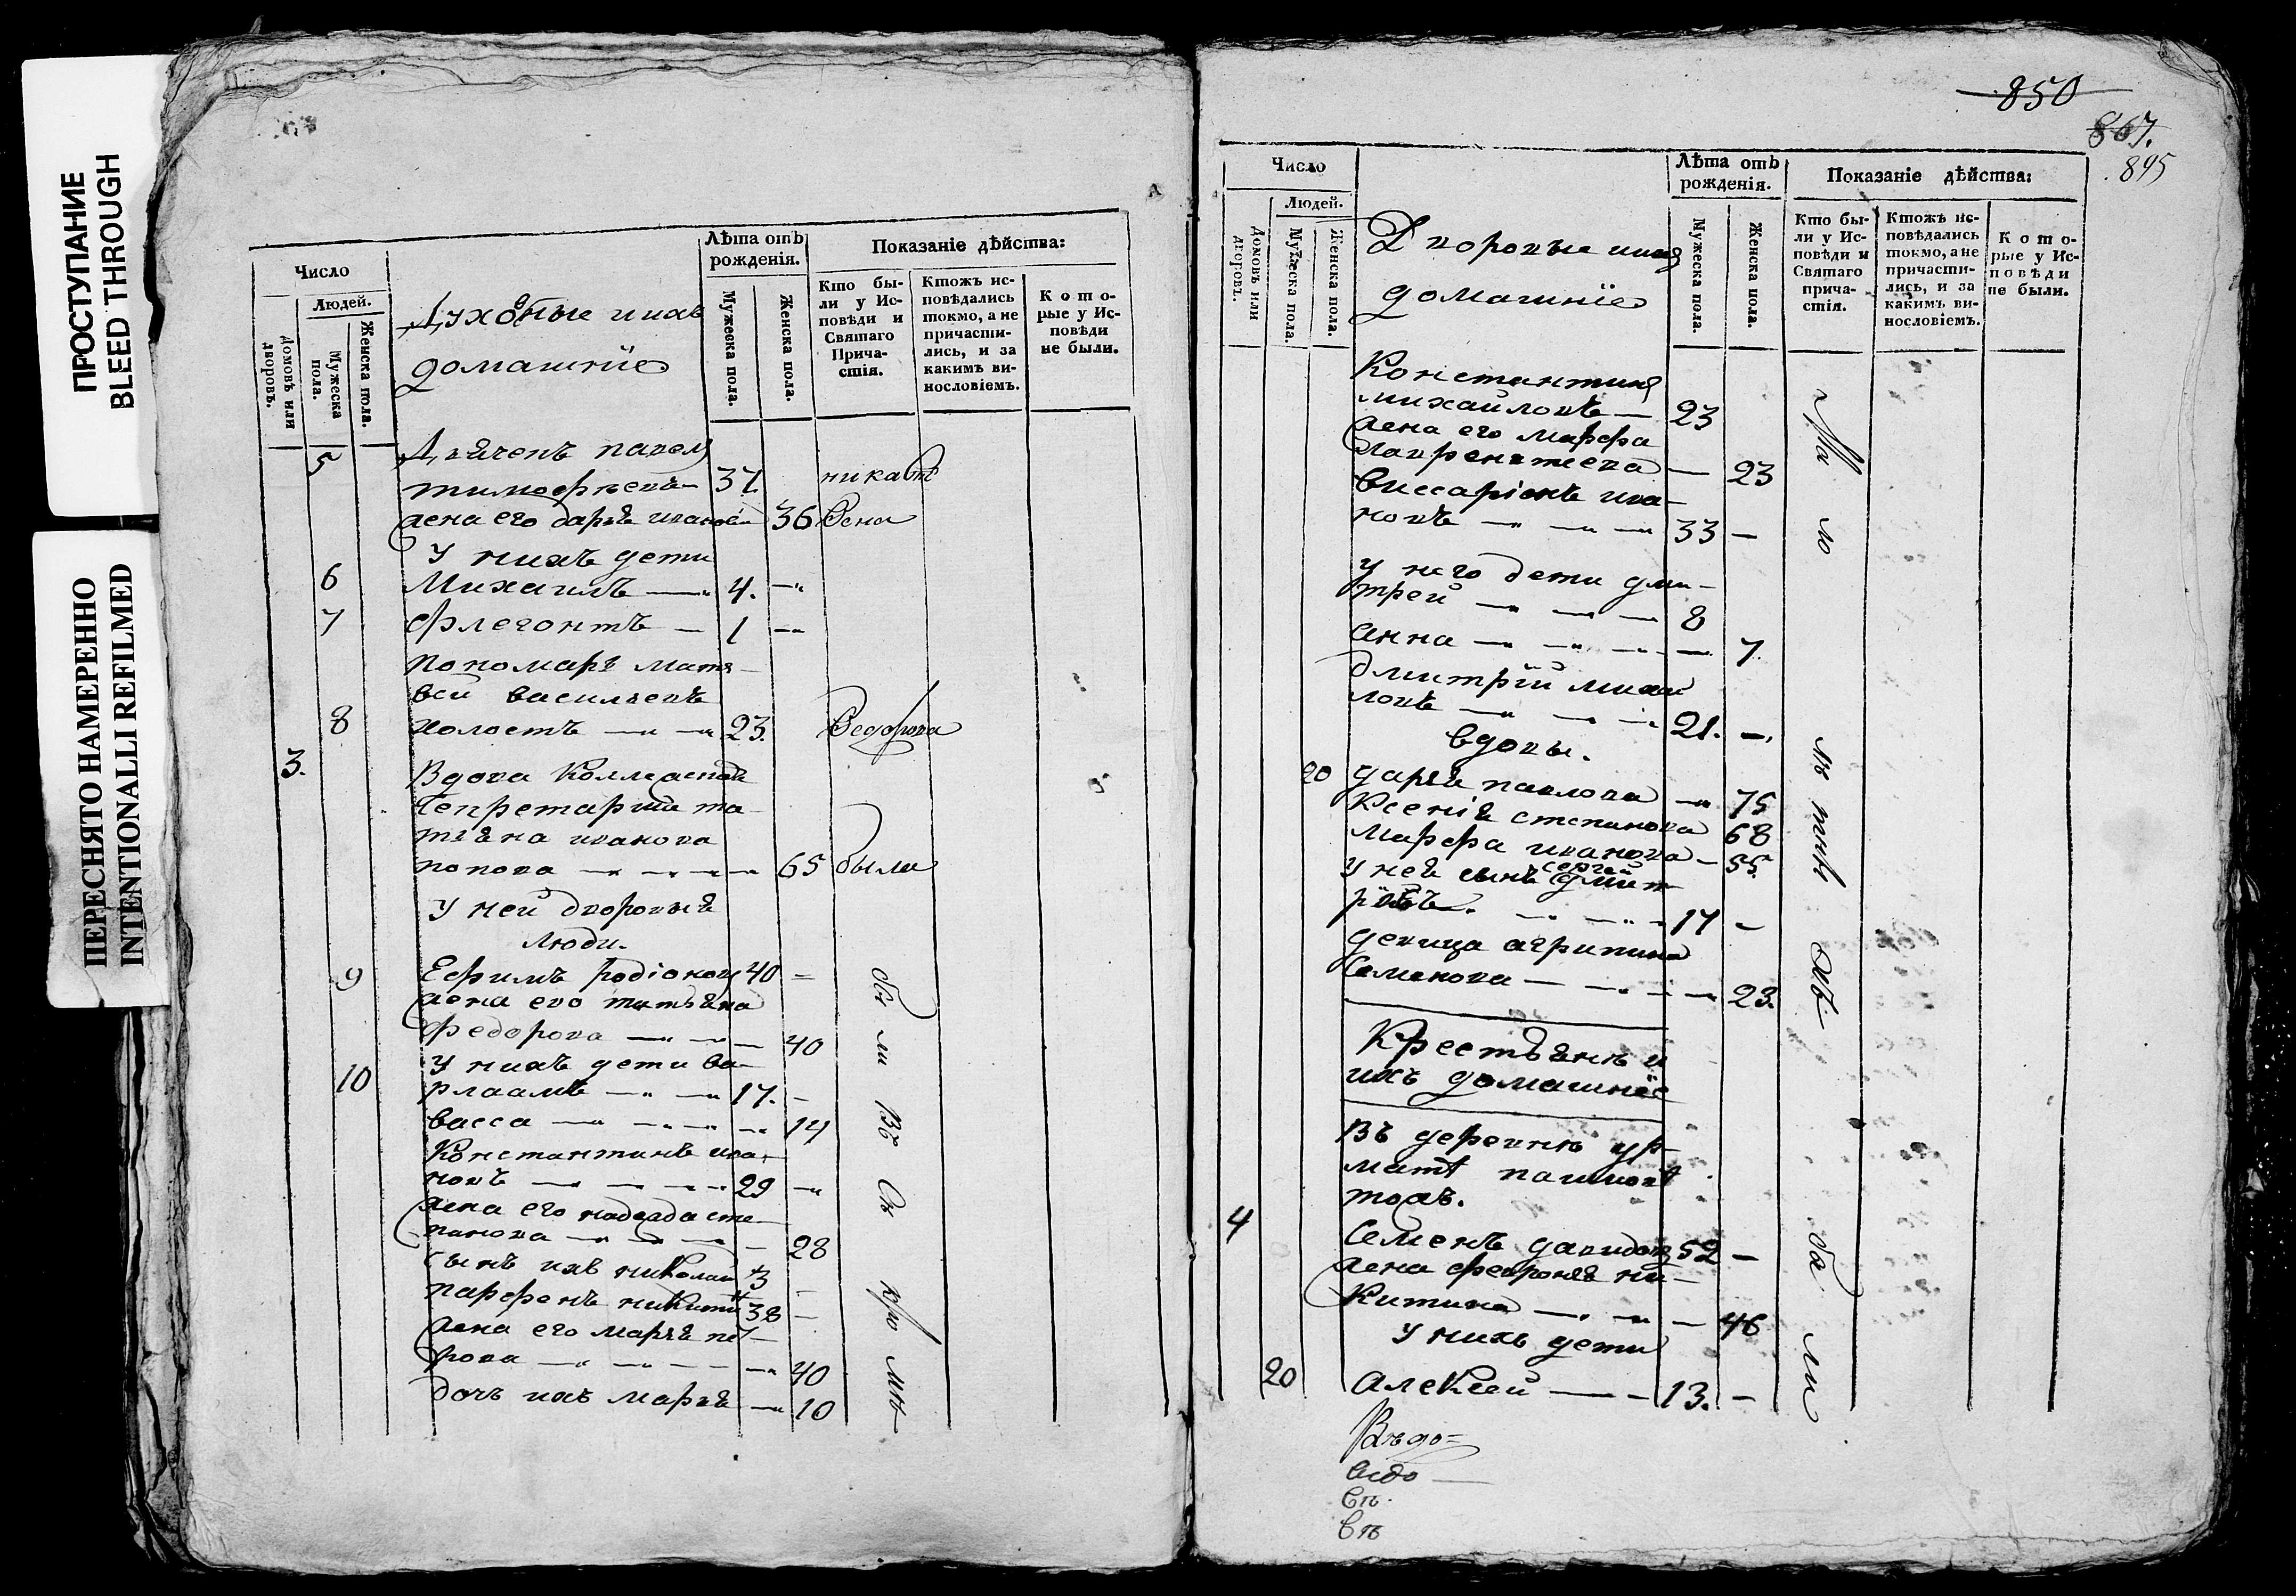 ПРОСТУПАНИЕ
BLEED THROUGH
ПЕРЕСНЯТО НАМЕРЕННО
INTENTIONALLI REFILMED
Число
Людей.
Домовъ или дворовъ.
Мужеска пола.
Женска пола.
Духовные и ихъ
домашнїе
Лѣта отъ рожденія.
Мужеска пола.
Женска пола.
Показаніе дѣйства:
Кто бы-
ли у Ис-
повѣди и
Святаго
Прича-
стія.
Ктожъ ис-
повѣдались
токмо, а не
причасти-
лись, и за
какимъ ви-
нословіемъ.
Кото-
рые у Ис-
повѣди
не были.
5 Дьячекъ павелъ
тимофѣевъ 37.
жена его дарья иванова 36
У нихъ дети
6 Михаилъ 4.
7 Флегонтъ 1
пономарь мат-
вей васильевъ
8 холостъ 23.
3. Вдова Коллежская
Секретарша та-
тьяна иванова
попова 65 были
У ней дворовыя
люди.
9 Ефимъ родіоновъ 40
жена его татьяна
федорова 40
У нихъ дети ва-
10 рлаамъ 17.
васса 14
Константинъ ива-
новъ 29
жена его надежда сте-
панова 28
сынъ ихъ николай 3
парфенъ никитинъ 38
жена его марья пет-
рова 40
дочь ихъ марья 10
850
867.
895
Число
Людей.
Домовъ или дворовъ.
Мужеска пола.
Женска пола.
Дворовые и ихъ
домашнїе
Лѣта отъ
рожденія.
Мужеска пола.
Женска пола.
Показаніе дѣйства:
Кто бы-
ли у Ис-
повѣди и
Святаго
прича-
стія.
Ктожъ ис-
повѣдались
токмо, а не
причасти-
лись, и за
какимъ ви-
нословіемъ.
Кото-
рые у Ис-
повѣди
не были.
Константинъ
михайловъ 23
жена его марфа
лаврентьева 23
виссаріонъ ива-
новъ 33
у него дети дми-
трей 8
анна 7.
дмитрій михай-
ловъ 21.
вдовы.
20 дарья павлова 75
Ксенія степанова 68
Марфа иванова 55.
у нея сынъ сергей дмит-
ріевъ. 17
девица агрипина
семенова 23.
Крестьянѣ и
ихъ домашнїе
Въ деревнѣ ур-
4 Семенъ давидовъ 52
жена феврония ни-
китина 46
У нихъ дети
20 алексей 13.